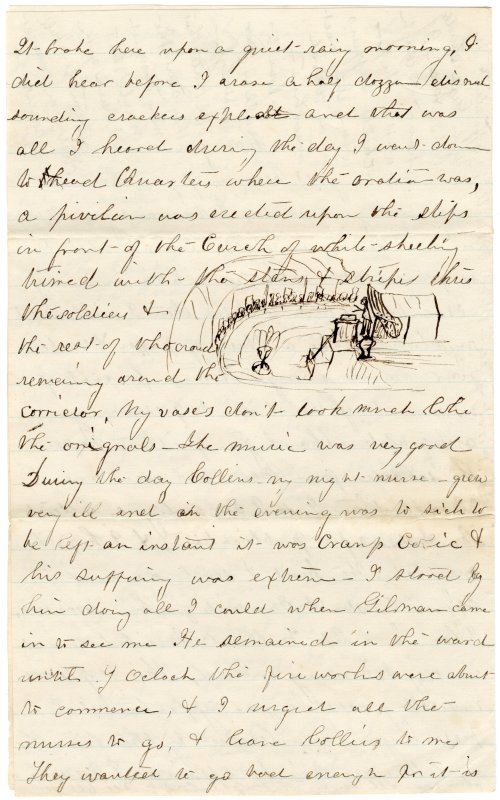 It broke here upon a quiet rainy morning, I
did hear before I arose a half dozzen dismal
sounding crackers explode and that was
all I heard during the day I went down
to Head Quarters where the oration was,
a pivilion was erected upon the steps
in front of the Curch of white sheeting
trimed with the stars & stripes this
the soldiers &
the rest of the crowd
remaing around the
corridor, My vases don't look much like
the orignals – The music was very good
During the day Collins my night nurse – grew
very ill and in the evening was to sick to
be left an instant it was Cramp Colic &
his suffering was extrem – I stood by
him doing all I could when Gilman came
in to see me He remained in the ward
until 7 Oclock the fire works were about
to commence, & I urged all the
nurses to go, & leave Collins to me
They wanted to go bad enough for it is